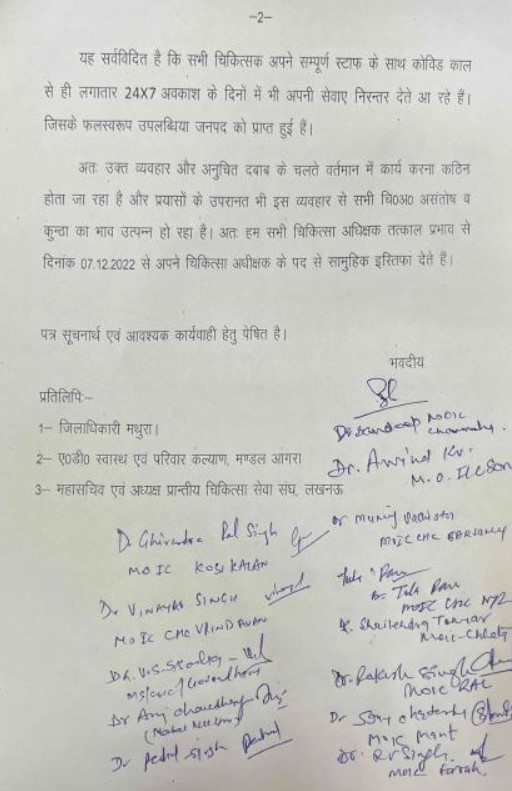 –2–
यह सर्वविदित है कि सभी चिकित्सक अपने सम्पूर्ण स्टाफ के साथ कोविड काल
से ही लगातार 24X7 अवकाश के दिनों में भी अपनी सेवाए निरन्तर देते आ रहे हैं।
जिसके फलस्वरूप उपलब्धिया जनपद को प्राप्त हुई हैं।
अतः उक्त व्यवहार और अनुचित दबाब के चलते वर्तमान में कार्य करना कठिन
होता जा रहा है और प्रयासों के उपरानत भी इस व्यवहार से सभी चि०अ० असंतोष व
कुन्ठा का भाव उत्पन्न हो रहा है। अतः हम सभी चिकित्सा अधिक्षक तत्काल प्रभाव से
दिनांक 07.12.2022 से अपने चिकित्सा अधीक्षक के पद से सामुहिक इस्तिफा देते हैं।
पत्र सूचनार्थ एवं आवश्यक कार्यवाही हेतु पेषित है।
भवदीय
प्रतिलिपिः–
Dr Sandeep MOIC
1– जिलाधिकारी मथुरा।
2– ए०डी० स्वास्थ एवं परिवार कल्याण, मण्डल आगरा
Dr. Arvind Kr.
M.O. I/C
3– महासचिव एवं अध्यक्ष प्रान्तीय चिकित्सा सेवा संघ, लखनऊ
Dr Pal Singh
MOIC KOSI KALAN
MOIC CHC
Dr VINAYAK SINGH
MOIC CHC VRINDAVAN
Dr. Tula Ram
MOIC CHC
Dr. Shailendra Tomar
MOIC-Chhata
Dr. V.S.
Dr. Rakesh Singh
MOIC RAL
Dr Anuj Chaudhary
Dr
MOIC Mant
Dr Singh
Dr. Singh
MOIC Farah